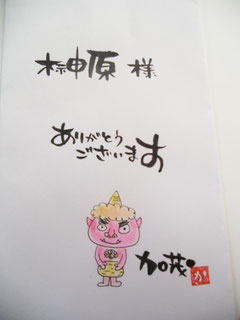 榊原 様
ありがとう
ございます
加茂
か